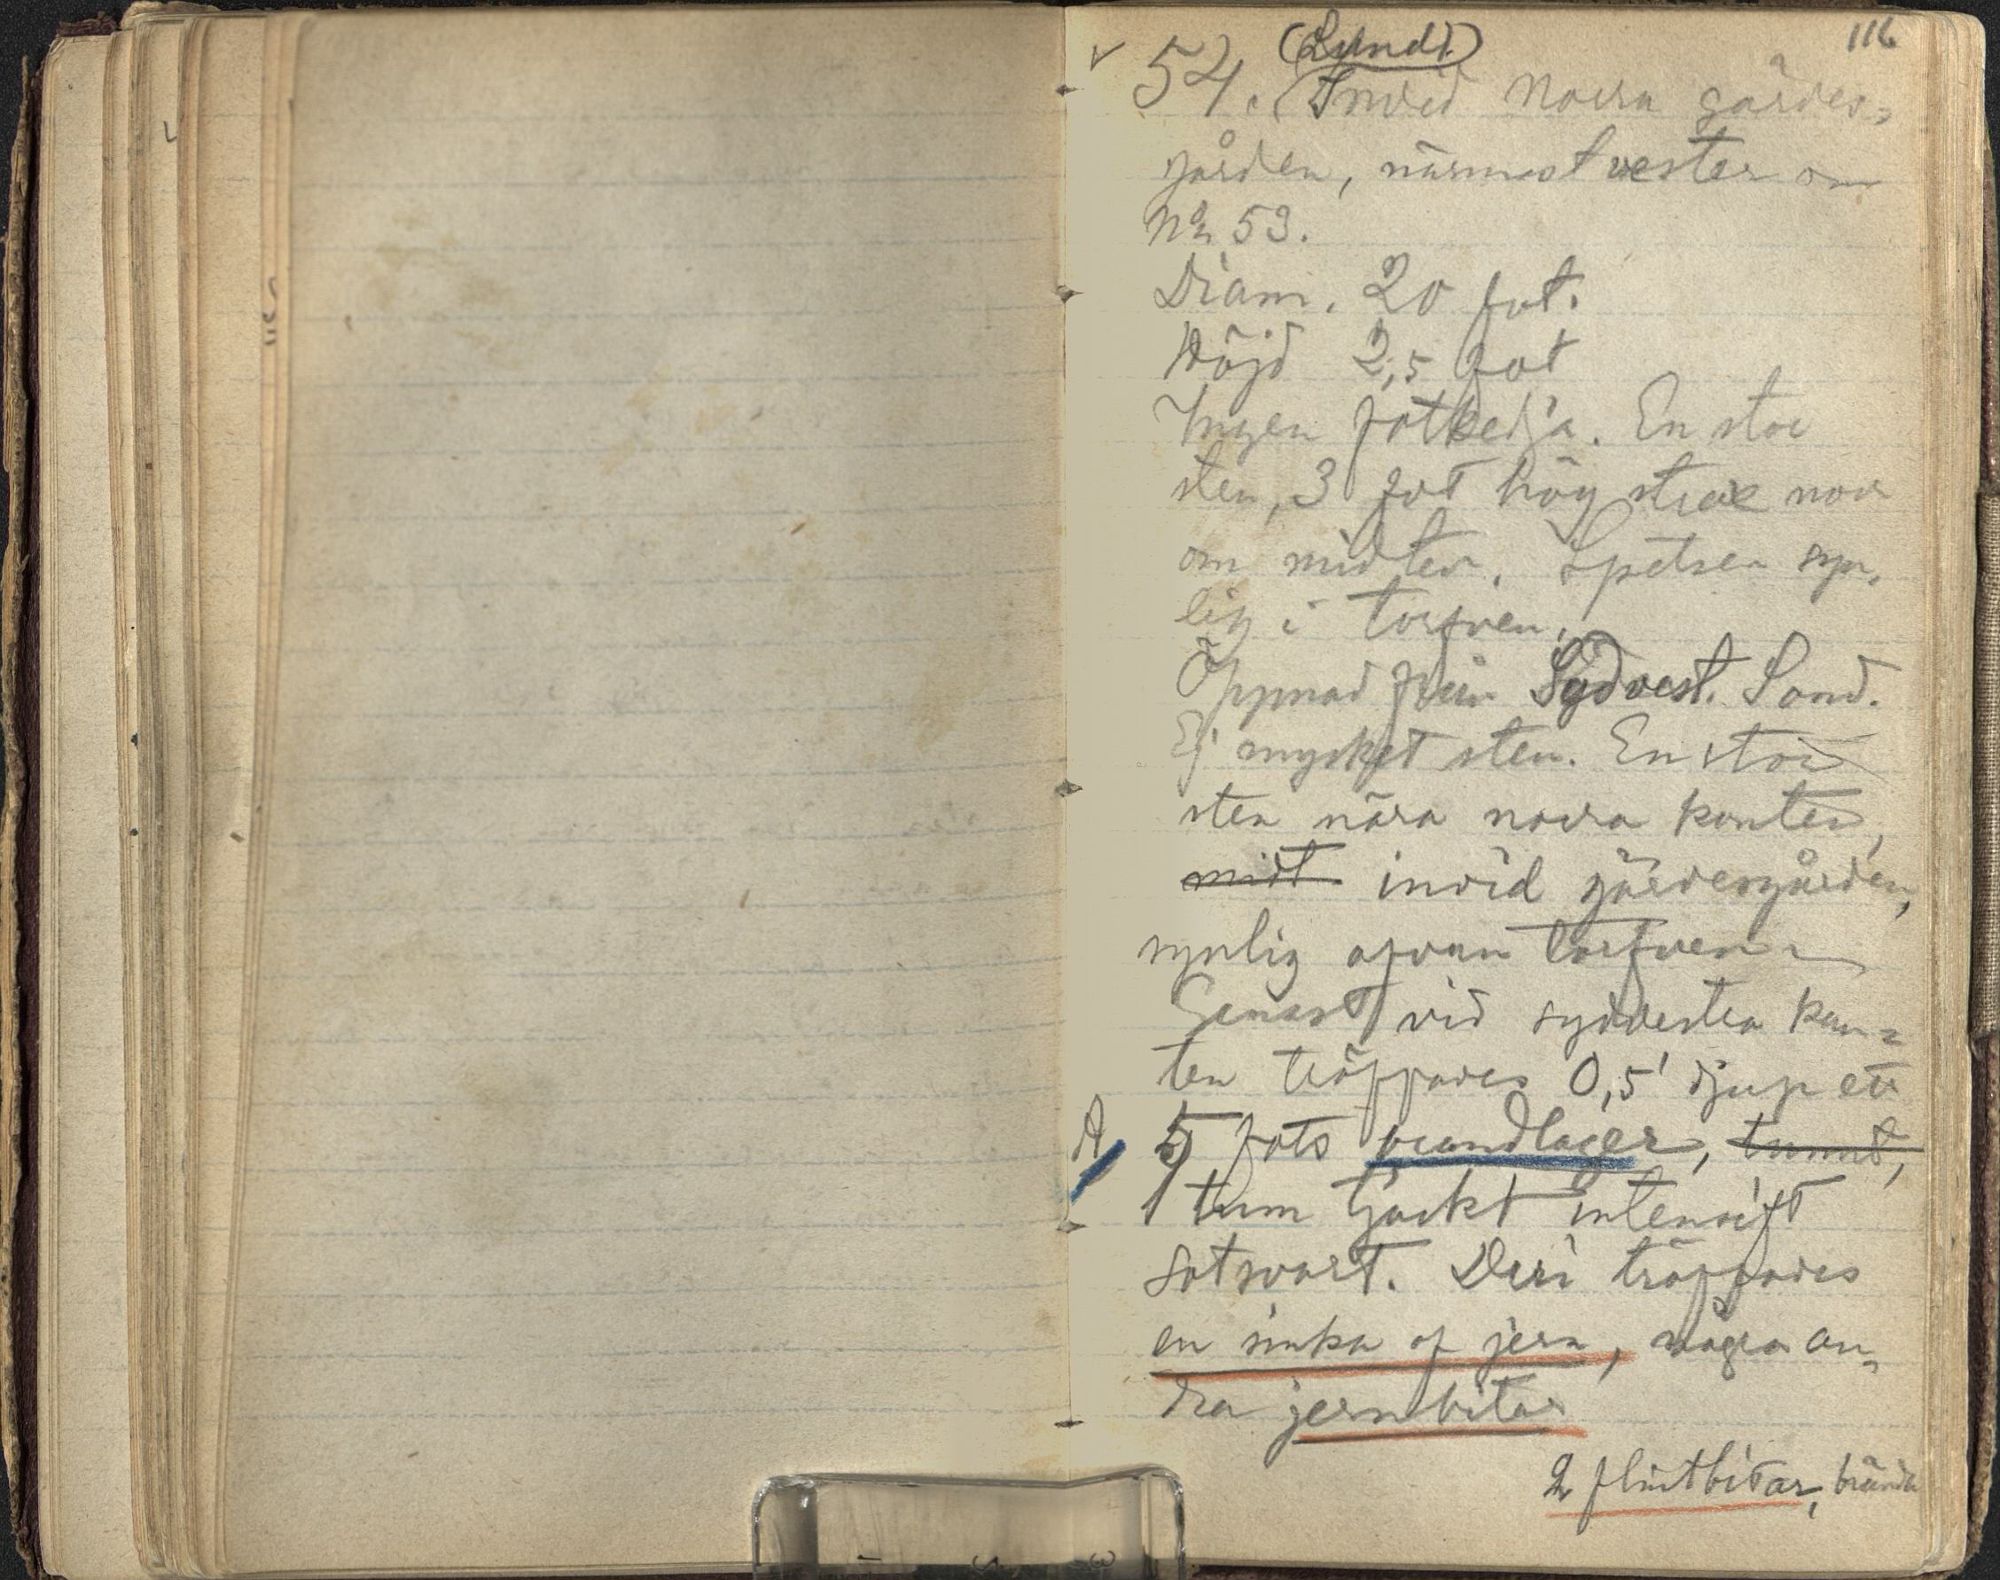 116
(Lund).
54. (Invid norra gärdes-
gården, närmast vester om
No 53.
Diam. 20 fot.
Höjd 2,5 fot
Ingen fotkedja. En stor
sten, 3 fot hög strax norr
om midten. Spetsen syn-
lig i torfven.
Öppnad från Sydvest. Sand.
Ej mycket sten. En stor
sten nära norra kanten,
midt invid gärdesgården,
synlig ofvan torfven.
Genast vid sydvestra kan-
ten träffades 0,5' djup ett
A 5 fots brandlager, tunnt,
1 tum tjockt intensift
sotsvart. Deri träffades
en sinka af jern, några an-
dra jernbitar
2 flintbitar, brända